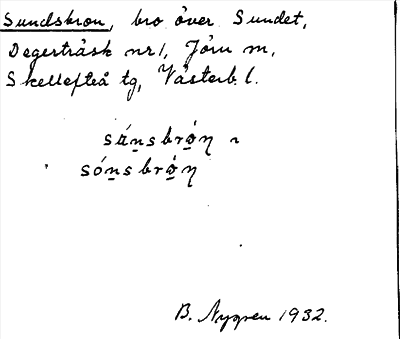 Sundskron, bro över Sundet,
Degerträsk nr 1, Jörn m,
Skellefteå tg, Västerb. l.
sánsbrǫ́η ~
sóṉsbrǫ́η
B. Nygren 1932.